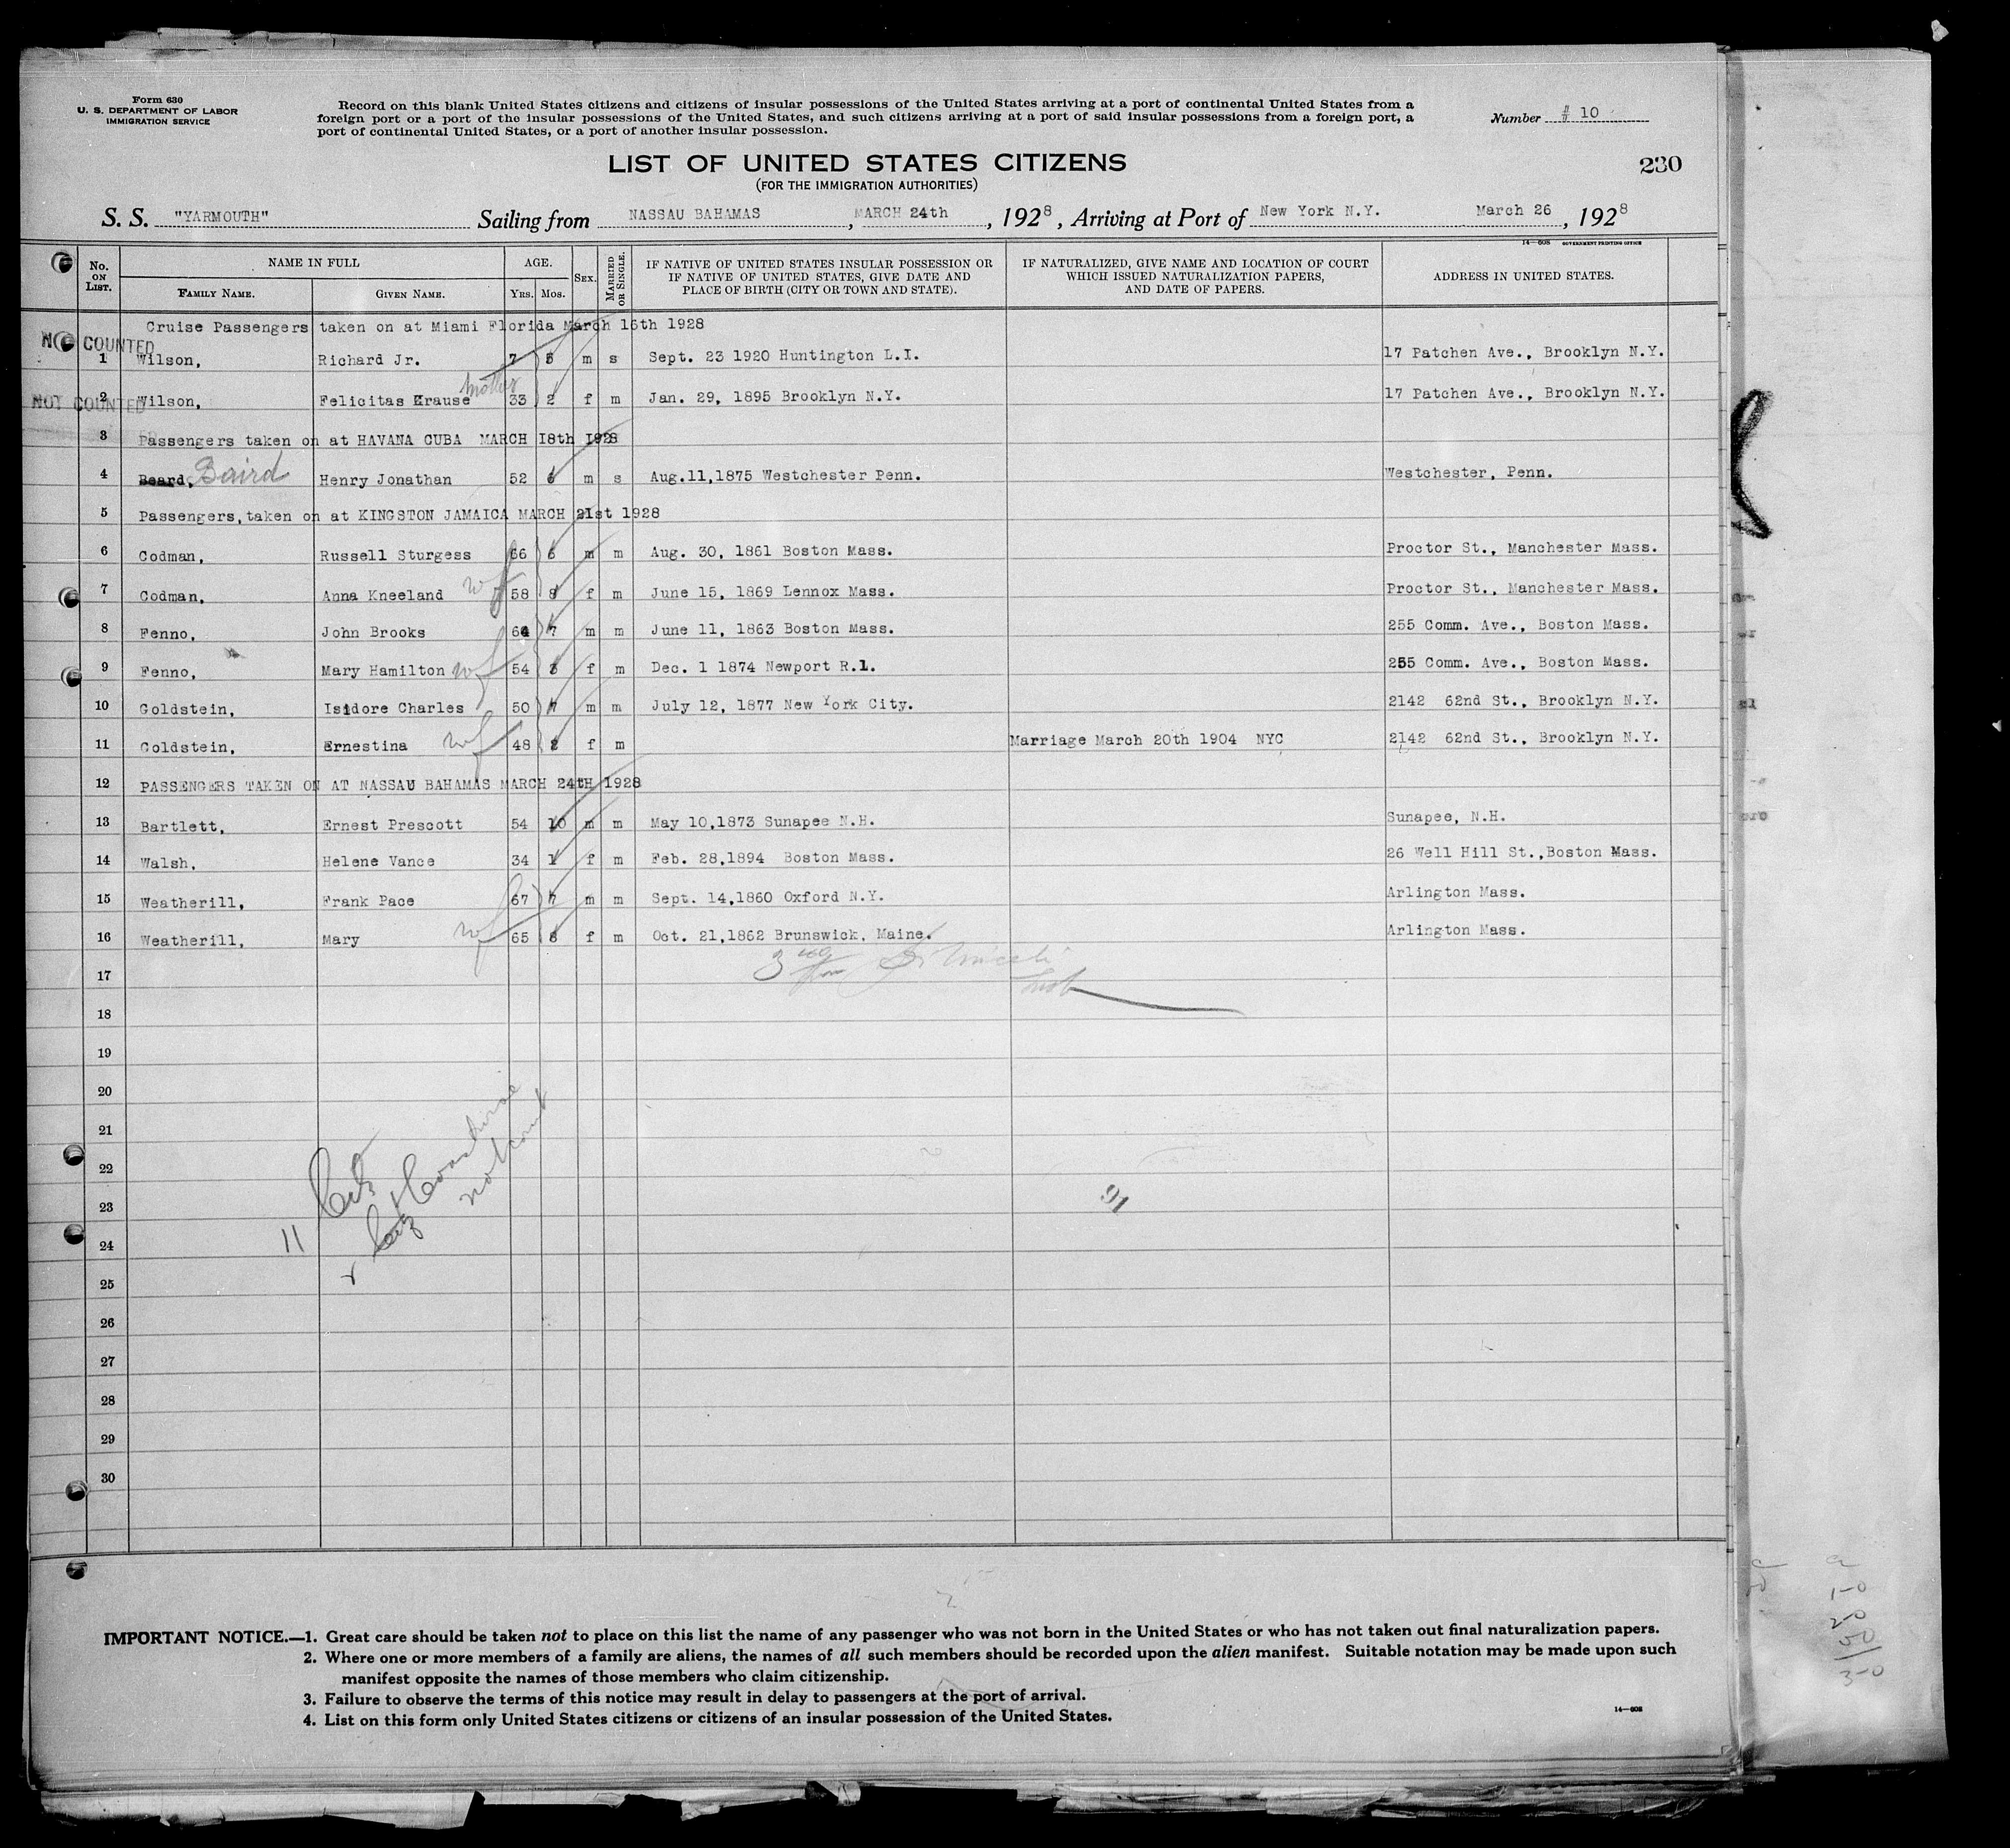 Form 630
U. S. DEPARTMENT OF LABOR
IMMIGRATION SERVICE
Record on this blank United States citizens and citizens of insular possessions of the United States arriving at a port of continental United States from a
foreign port or a port of the insular possessions of the United States, and such citizens arriving at a port of said insular possessions from a foreign port, a
port of continental United States, or a port of another insular possession.
Number # 10
230
LIST OF UNITED STATES CITIZENS
(FOR THE IMMIGRATION AUTHORITIES)
S. S. "YARMOUTH" Sailing from NASSAU BAHAMAS, MARCH 24th, 1928, Arriving at Port of New York N.Y. March 26, 1928
14—608 GOVERNMENT PRINTING OFFICE
No. ON LIST. NAME IN FULL FAMILY NAME. GIVEN NAME. AGE. YRS. MOS. SEX. MARRIED OR SINGLE. IF NATIVE OF UNITED STATES INSULAR POSSESSION OR IF NATIVE OF UNITED STATES, GIVE DATE AND PLACE OF BIRTH (CITY OR TOWN AND STATE). IF NATURALIZED, GIVE NAME AND LOCATION OF COURT WHICH ISSUED NATURALIZATION PAPERS, AND DATE OF PAPERS. ADDRESS IN UNITED STATES.
Cruise Passengers taken on at Miami Florida March 16th 1928
NOT COUNTED
1 Wilson, Richard Jr. 7 5 m s Sept. 23 1920 Huntington L.I. 17 Patchen Ave., Brooklyn N.Y.
mother
NOT COUNTED
2 Wilson, Felicitas Krause 33 2 f m Jan. 29, 1895 Brooklyn N.Y. 17 Patchen Ave., Brooklyn N.Y.
3 Passengers taken on at HAVANA CUBA MARCH 18th 1928
4 Beard, Baird Henry Jonathan 52 6 m s Aug.11,1875 Westchester Penn. Westchester, Penn.
5 Passengers, taken on at KINGSTON JAMAICA MARCH 21st 1928
6 Codman, Russell Sturgess 66 6 m m Aug. 30, 1861 Boston Mass. Proctor St., Manchester Mass.
7 Codman, Anna Kneeland wf 58 8 f m June 15, 1869 Lennox Mass. Proctor St., Manchester Mass.
8 Fenno, John Brooks 64 7 m m June 11, 1863 Boston Mass. 255 Comm. Ave., Boston Mass.
9 Fenno, Mary Hamilton wf 54 3 f m Dec. 1 1874 Newport R.I. 255 Comm. Ave., Boston Mass.
10 Goldstein, Isidore Charles 50 7 m m July 12, 1877 New York City. 2142 62nd St., Brooklyn N.Y.
11 Goldstein, Ernestina wf 48 2 f m Marriage March 20th 1904 NYC 2142 62nd St., Brooklyn N.Y.
12 PASSENGERS TAKEN ON AT NASSAU BAHAMAS MARCH 24TH 1928
13 Bartlett, Ernest Prescott 54 10 m m May 10,1873 Sunapee N.H. Sunapee, N.H.
14 Walsh, Helene Vance 34 1 f m Feb. 28,1894 Boston Mass. 26 Well Hill St.,Boston Mass.
15 Weatherill, Frank Pace 67 7 m m Sept. 14,1860 Oxford N.Y. Arlington Mass.
16 Weatherill, Mary wf 65 8 f m Oct. 21,1862 Brunswick, Maine. Arlington Mass.
17
18
19
20
21
22
23
24
25
26
27
28
29
30
11
not count
IMPORTANT NOTICE.—1. Great care should be taken not to place on this list the name of any passenger who was not born in the United States or who has not taken out final naturalization papers.
2. Where one or more members of a family are aliens, the names of all such members should be recorded upon the alien manifest. Suitable notation may be made upon such
manifest opposite the names of those members who claim citizenship.
3. Failure to observe the terms of this notice may result in delay to passengers at the port of arrival.
4. List on this form only United States citizens or citizens of an insular possession of the United States.
14—608